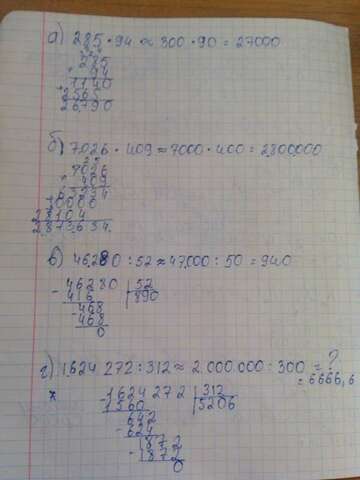 а) 285 · 94 ≈ 300 · 90 = 27000
285
94
1140
2565
26790
б) 7026 · 409 ≈ 7000 · 400 = 2800000
7026
409
63234
0000
28104
2873634
в) 46280 : 52 ≈ 47000 : 50 = 940
- 46280 | 52
416 | 890
- 468
468
0
г) 1.624 272 : 312 ≈ 2.000.000 : 300 = ?
= 6666,6
- 1624272 | 312
1560 | 5206
- 642
624
- 1872
1872
0